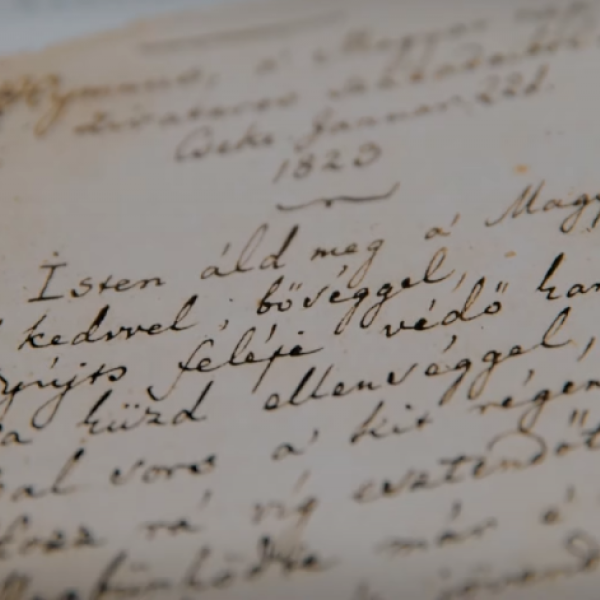 Hymnus, a' Magyar nép
zivataros századaiból
Cseke Januar. 22d.
1823
Isten áld meg a' Magy
kedvvel, bőséggel,
nyújts feléje védő kar
a küzd ellenséggel,
Bal sors a' kit régen
Hozz rá víg esztendőt
Megbűnhödte már é
jövend